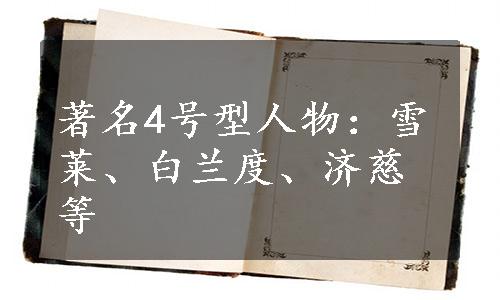 著名4号型人物：雪
莱、白兰度、济慈
等